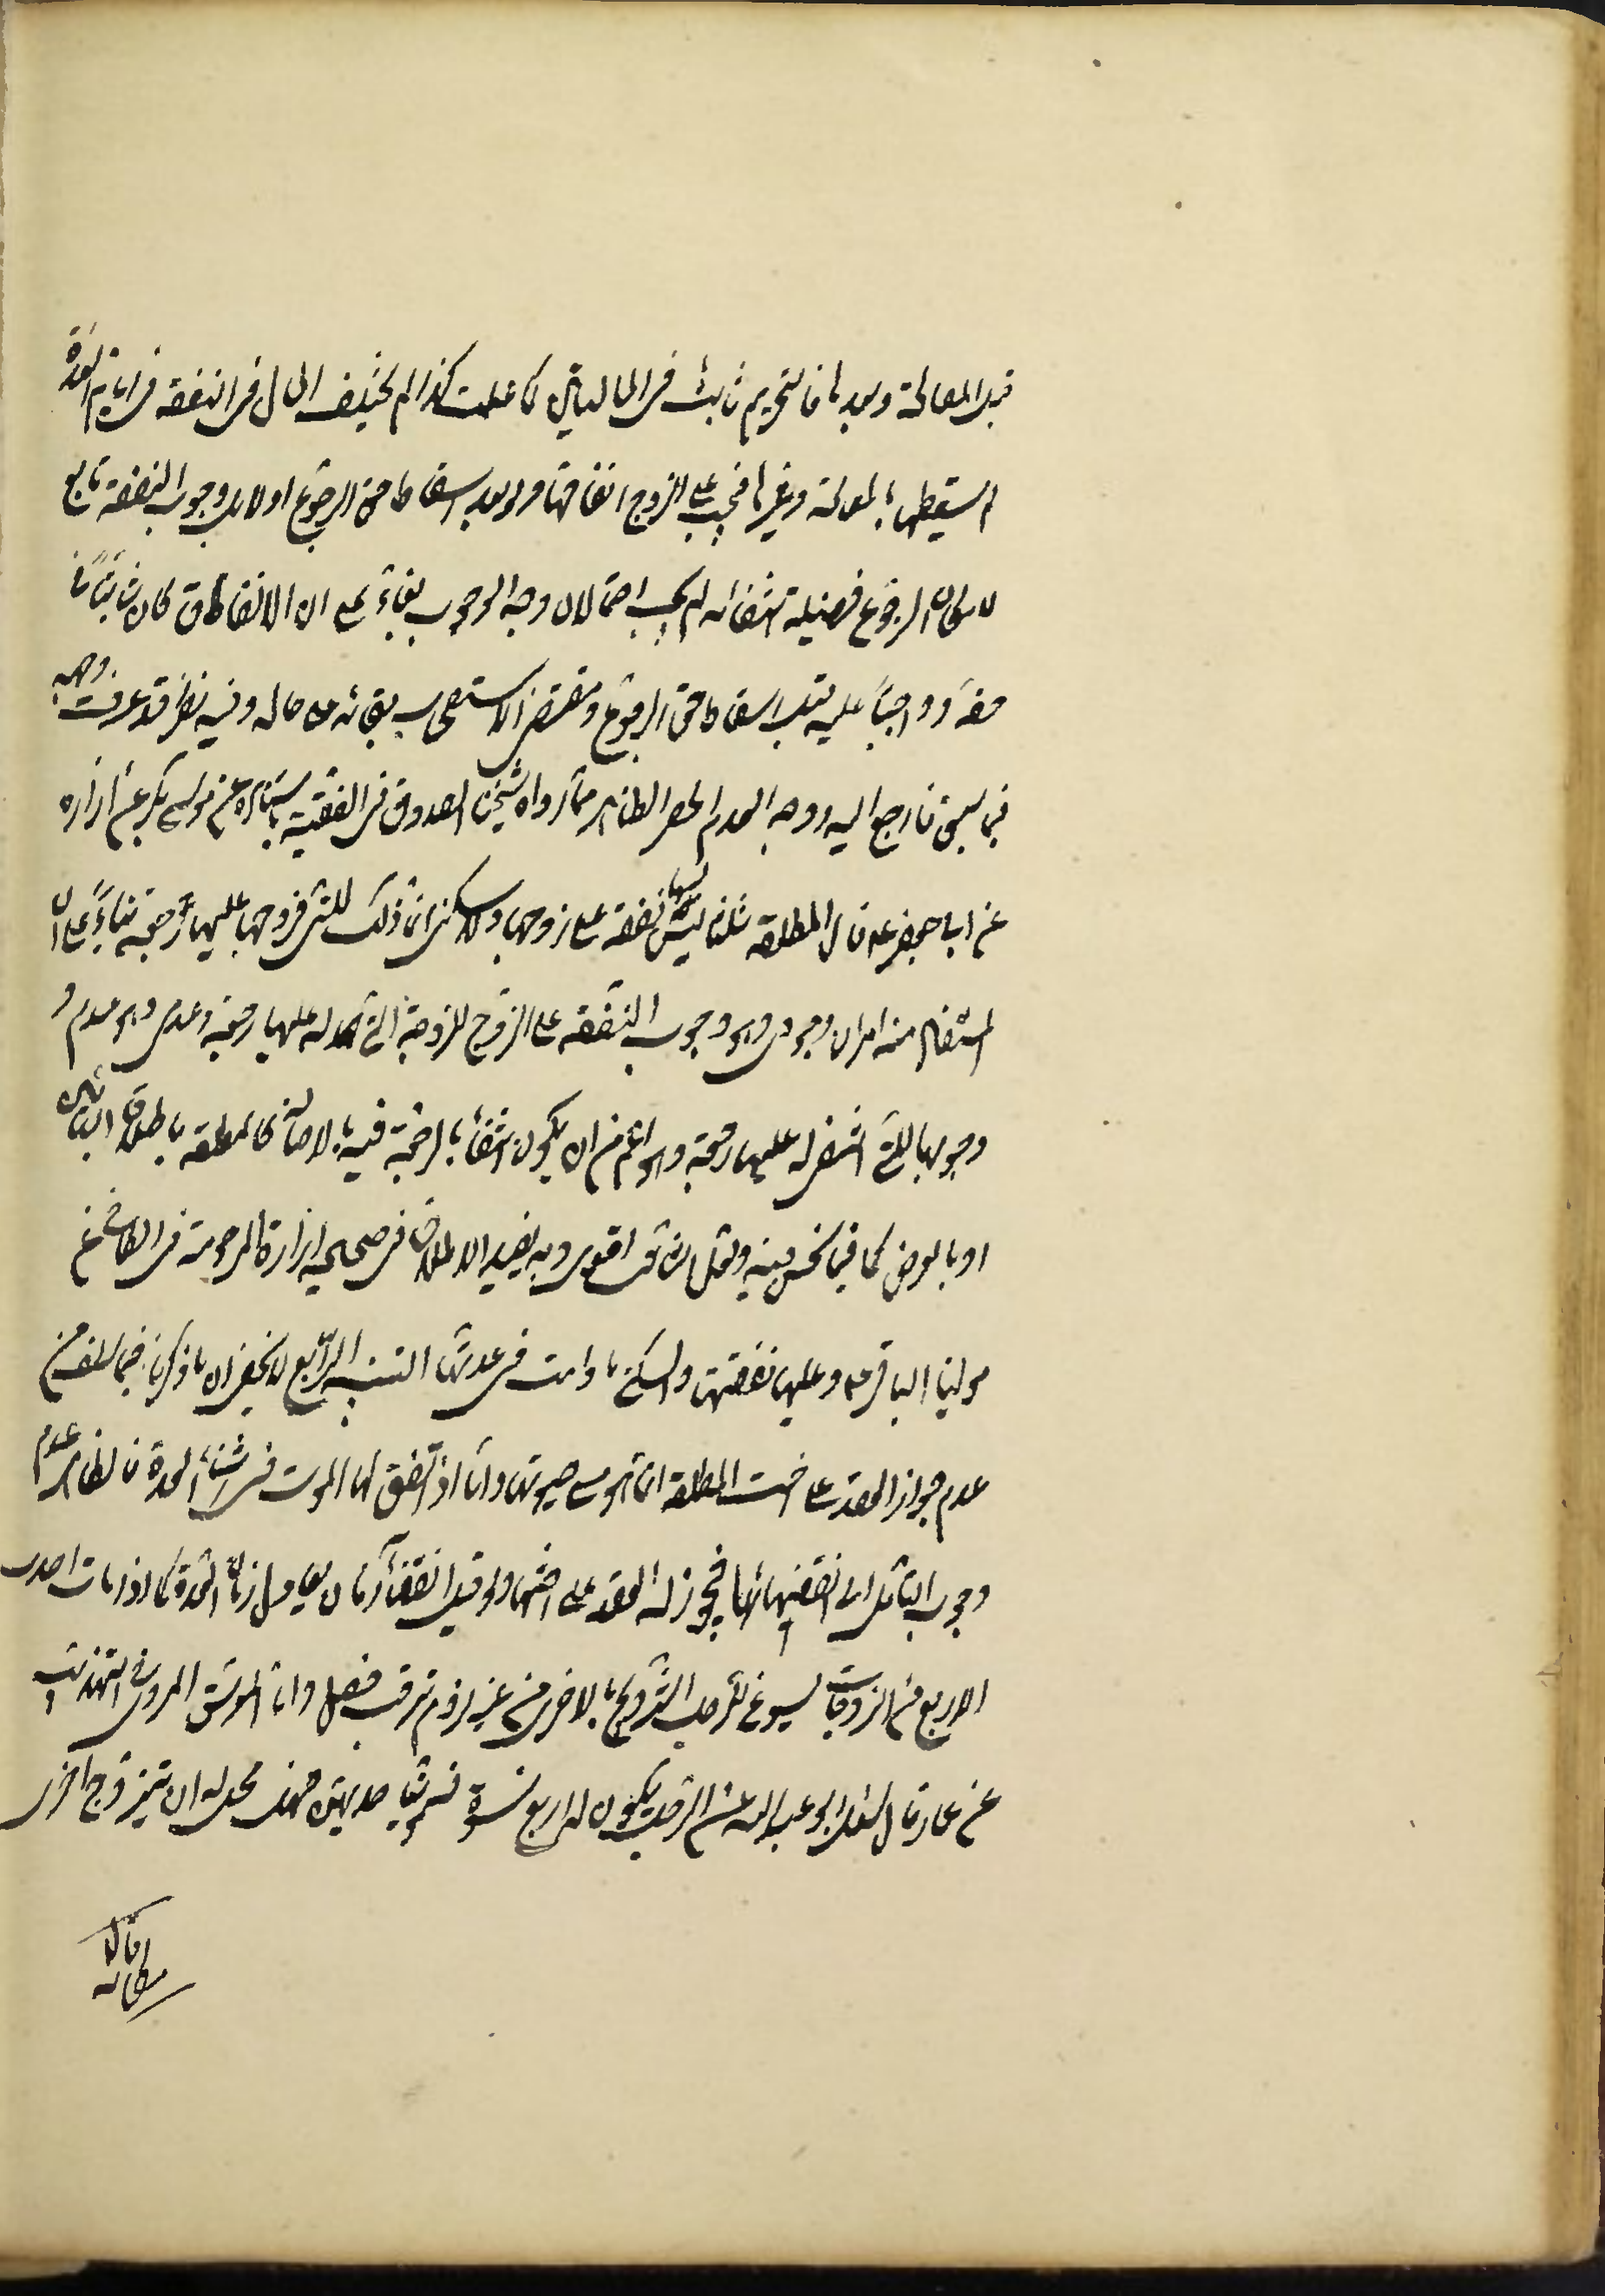 قبل المصالحة وبعدها فالتحريم ثابت في الحالتين كما علمت كذا لم يختلف الحال في النفقة في ايام العدة
المسقطة بالمصالحة وغيرها فيجب على الزوج انفاقها ولو بعد اسقاط حق الرجوع اولا بل وجوب النفقة تابع
لامكان الرجوع فمع انتفائه لم يجب احتمالان وجه الوجوب بناء على ان الانفاق كان ثابتا
حقه وواجبا عليه قبل اسقاط حق الرجوع ومقتضى الاستصحاب بقائه على حاله وفيه نظر قد عرفت وجهه
فيما سبق فارجع اليه ووجه العدم الحصر الظاهر مما رواه شيخنا الصدوق في الفقيه باسناده عن موسى بن بكر عن زرارة
عن ابي جعفر ع قال المطلقة ثلثا ليس لها نفقة على زوجها ولا سكنى انما ذلك للتي لزوجها عليها رجعة بناء على ان
المستفاد منه امران وجودي وهو وجوب النفقة على الزوج للزوجة التي له عليها رجعة وعدمي وهو عدم
وجوبها للتي انتفى له عليها رجعة وهو اعم من ان يكون انتفاء الرجعة فيه بالاصالة كالمطلقة بالطلاق البائن
او بالعوض كما فيما نحن فيه ولعل الثاني اقوى وبه يقيد الاطلاق في صحيحة زرارة المروية في الكافي عن
مولينا الباقر ع وعليه نفقتها والسكنى ما دامت في عدتها التنبيه الرابع لا يخفى ان ما ذكرنا فيما سلف من
عدم جواز العقد على اخت المطلقة انما هو مع حيوتها واما اذا اتفق لها الموت في اثناء العدة فالظاهر عدم
وجوب التامل الى انقضائها فيجوز له العقد على اختها ولو قبل انقضاء زمان يقابل زمان العدة كما اذا ماتت احدى
الاربع من الزوجات يسوغ للرجل التزويج بالاخرى من غير لزوم ترقب فصل واما الموثق المروي في التهذيب
عن عمار قال سئل ابو عبد الله عن الرجل يكون له اربع نسوة فتموت احديهن فهل يحل له ان يتزوج اخرى
مكانها